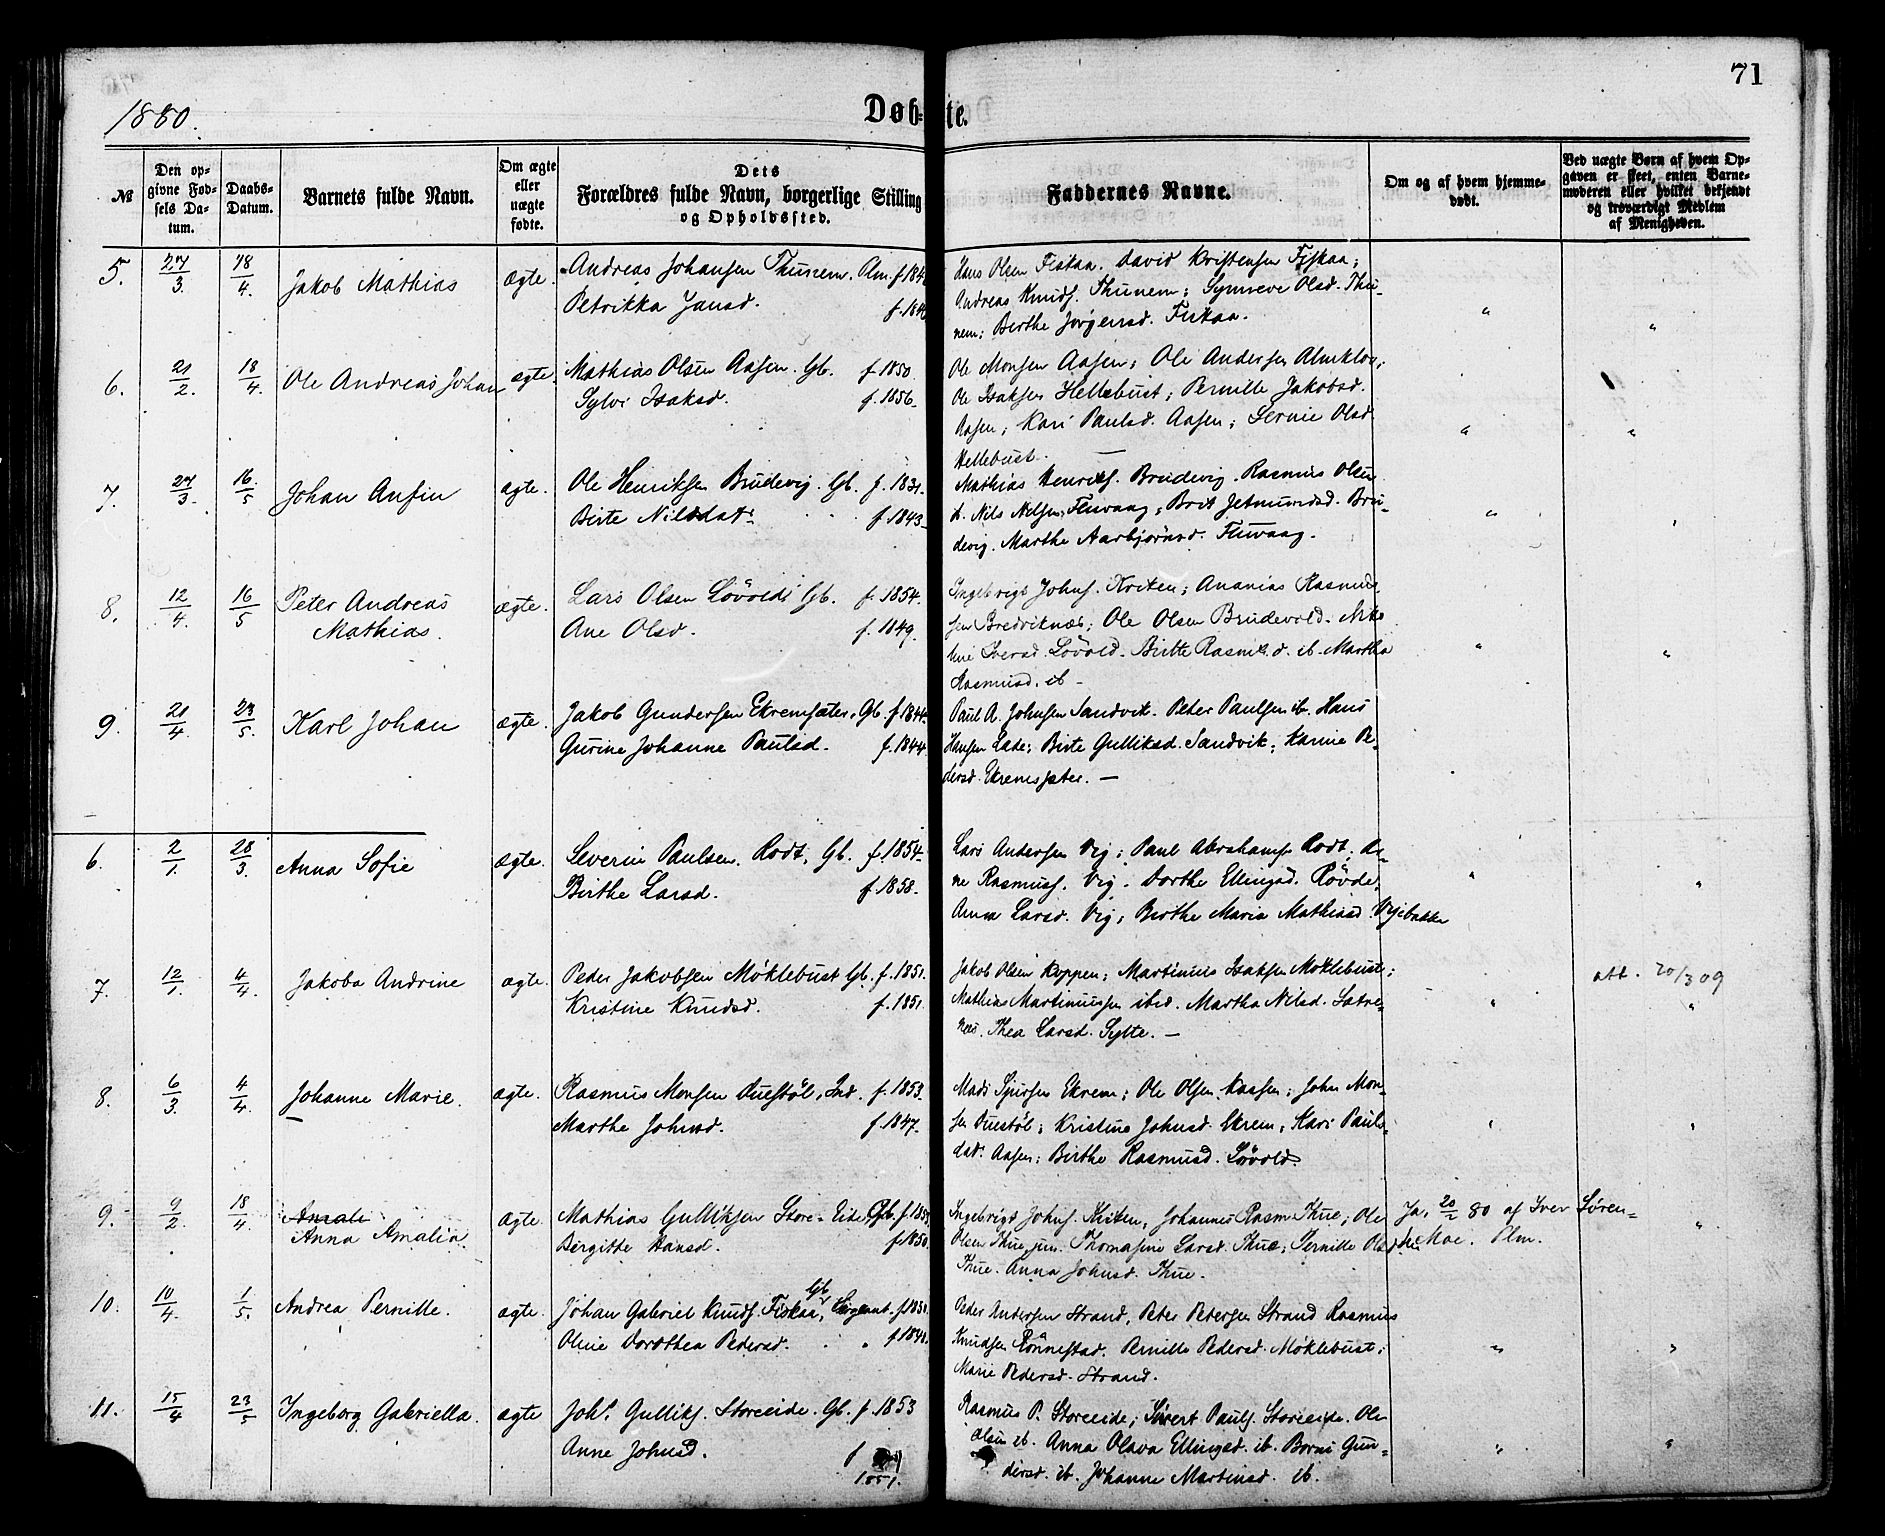 71
1880.
Døbte.
№
Den opgivne Fødsels Datum.
Daabs-Datum.
Barnets fulde Navn.
Om ægte eller uægte fødte.
Dets Forældres fulde Navn, borgerlige Stilling og Opholdssted.
Faddernes Navne.
Om og af hvem hjemmedøbt.
Ved uægte Børn af hvem Opgaven er skeet, enten Barnemoderen eller hvilket bekjendt og troværdigt Medlem af Menigheden.
5. 27/3. 18/4. Jakob Mathias ægte. Andreas Johansen Thunem. Alm.
Petrikka Jansd.
Hans Olsen Fiskaa. David Kristensen Fiskaa;
Andreas Knuds. Thunem; Synneve Olsd. Thu-
nem; Birthe Jørgensd. Fiskaa.
6. 21/2. 18/4. Ole Andreas Johan ægte. Mathias Olsen Aasen. Gb. f 1850
Sylvi Isaksd. f. 1856.
Ole Monsen Aasen; Ole Andersen Almklov;
Ole Isaksen Hellebust; Pernille Jakobsd.
Aasen; Kari Paulsd. Aasen; Serine Olsd.
Hellebust.
7. 27/3. 16/5 Johan Anfin ægte. Ole Henriksen Brudevig. Gb. f. 1831.
Birte Nilsdat. f. 1843.
Mathias Henriks. Brudevig. Rasmus Olsen
ib. Nils Nilsen Fluvaag; Brit Jetmundsd. Bru-
devig. Marthe Aarbjørnsd. Fluvaag.
8. 12/4. 16/5 Peter Andreas Mathias. ægte. Lars Olsen Løvold Gb. f. 1854.
Ane Olsd. f. 1849.
Ingebrigt Johns. Kviten; Ananias Rasmus-
sen Bredviknæs; Ole Olsen Brudevold.
Iversd. Løvold. Birthe Rasm.d. ib. Martha
Rasmusd. ib
9. 21/4. 23/5. Karl Johan ægte. Jakob Gundersen Ekremsæter. Gb. f 1844.
Gurine Johanne Paulsd. f. 1844.
Paul A. Johnsen Sandvik. Peter Paulsen ib. Hans
Hansen Lade; Birte Gulliksd. Sandvik; Karine Pe-
dersd. Ekremsæter. —
6. 2/1. 28/3. Anna Sofie ægte. Severin Paulsen. Rodt, Gb. f 1854.
Birthe Larsd. f 1858.
Lars Andersen Vig; Paul Abrahams. Rodt; Ar-
ne Rasmuss. Vig. Dorthe Ellingsd. Røvde;
Anna Larsd. Vig; Birthe Maria Mathiasd. Vejebakke
7. 12/1. 4/4. Jakoba Andrine ægte. Peder Jakobsen Møklebust Gb. f. 1851.
Kristine Knudsd. f. 1851.
Jakob Olsen Koppen; Martinus Isaksen Møklebust;
Mathias Martinussen ibid. Martha Nilsd. Sætre-
næs. Thea Larsd. Sylte. —
att. 20/3 09
8. 6/3. 4/4. Johanne Marie. ægte. Rasmus Monsen Duestøl, Ind. f. 1853.
Marthe Johnsd. f 1847.
Mads Sjursen Ekrem; Ole Olsen Kaasen; John Mon-
sen Duestøl; Kristine Johnsd. Ekrem; Kari Pauls-
dat. Aasen; Birthe Rasmusd. Løvold.
9. 9/2. 18/4. Amali Anna Amalia. ægte. Mathias Gulliksen Store-Eide, Gb.
Birgitte Hansd. f 1850.
Ingebrigt Johns. Kviten, Johannes Rasm. Thue; Ole
Olsen Thue jun. Thomasine Larsd. Thue; Pernille Olsd.
Thue. Anna Johnsd. Thue.
Ja, 20/2 80 af Iver Søren-
sen Moe. Alm.
10. 10/4. 1/5. Andrea Pernille. ægte. Johan Gabriel Knuds. Fiskaa, Gb. Sergeant.
Oline Dorothea Pedersd.
Peder Andersen Strand, Peter Petersen Strand Rasmus
Knudsen Rønnestad. Pernille Pedersd. Møklebust;
Marie Pedersd. Strand.
11. 15/4 23/5 Ingeborg Gabriella. ægte Johs. Gulliks. Storeeide. Gb. f. 1853
Anne Johnsd. f 1851.
Rasmus P. Storeeide; Sivert Pauls. Storeeide. Ole
Olsen ib. Anna Olava Ellingsd. ib. Berni Gun-
dersd. ib. Johanne Martinsd. ib.